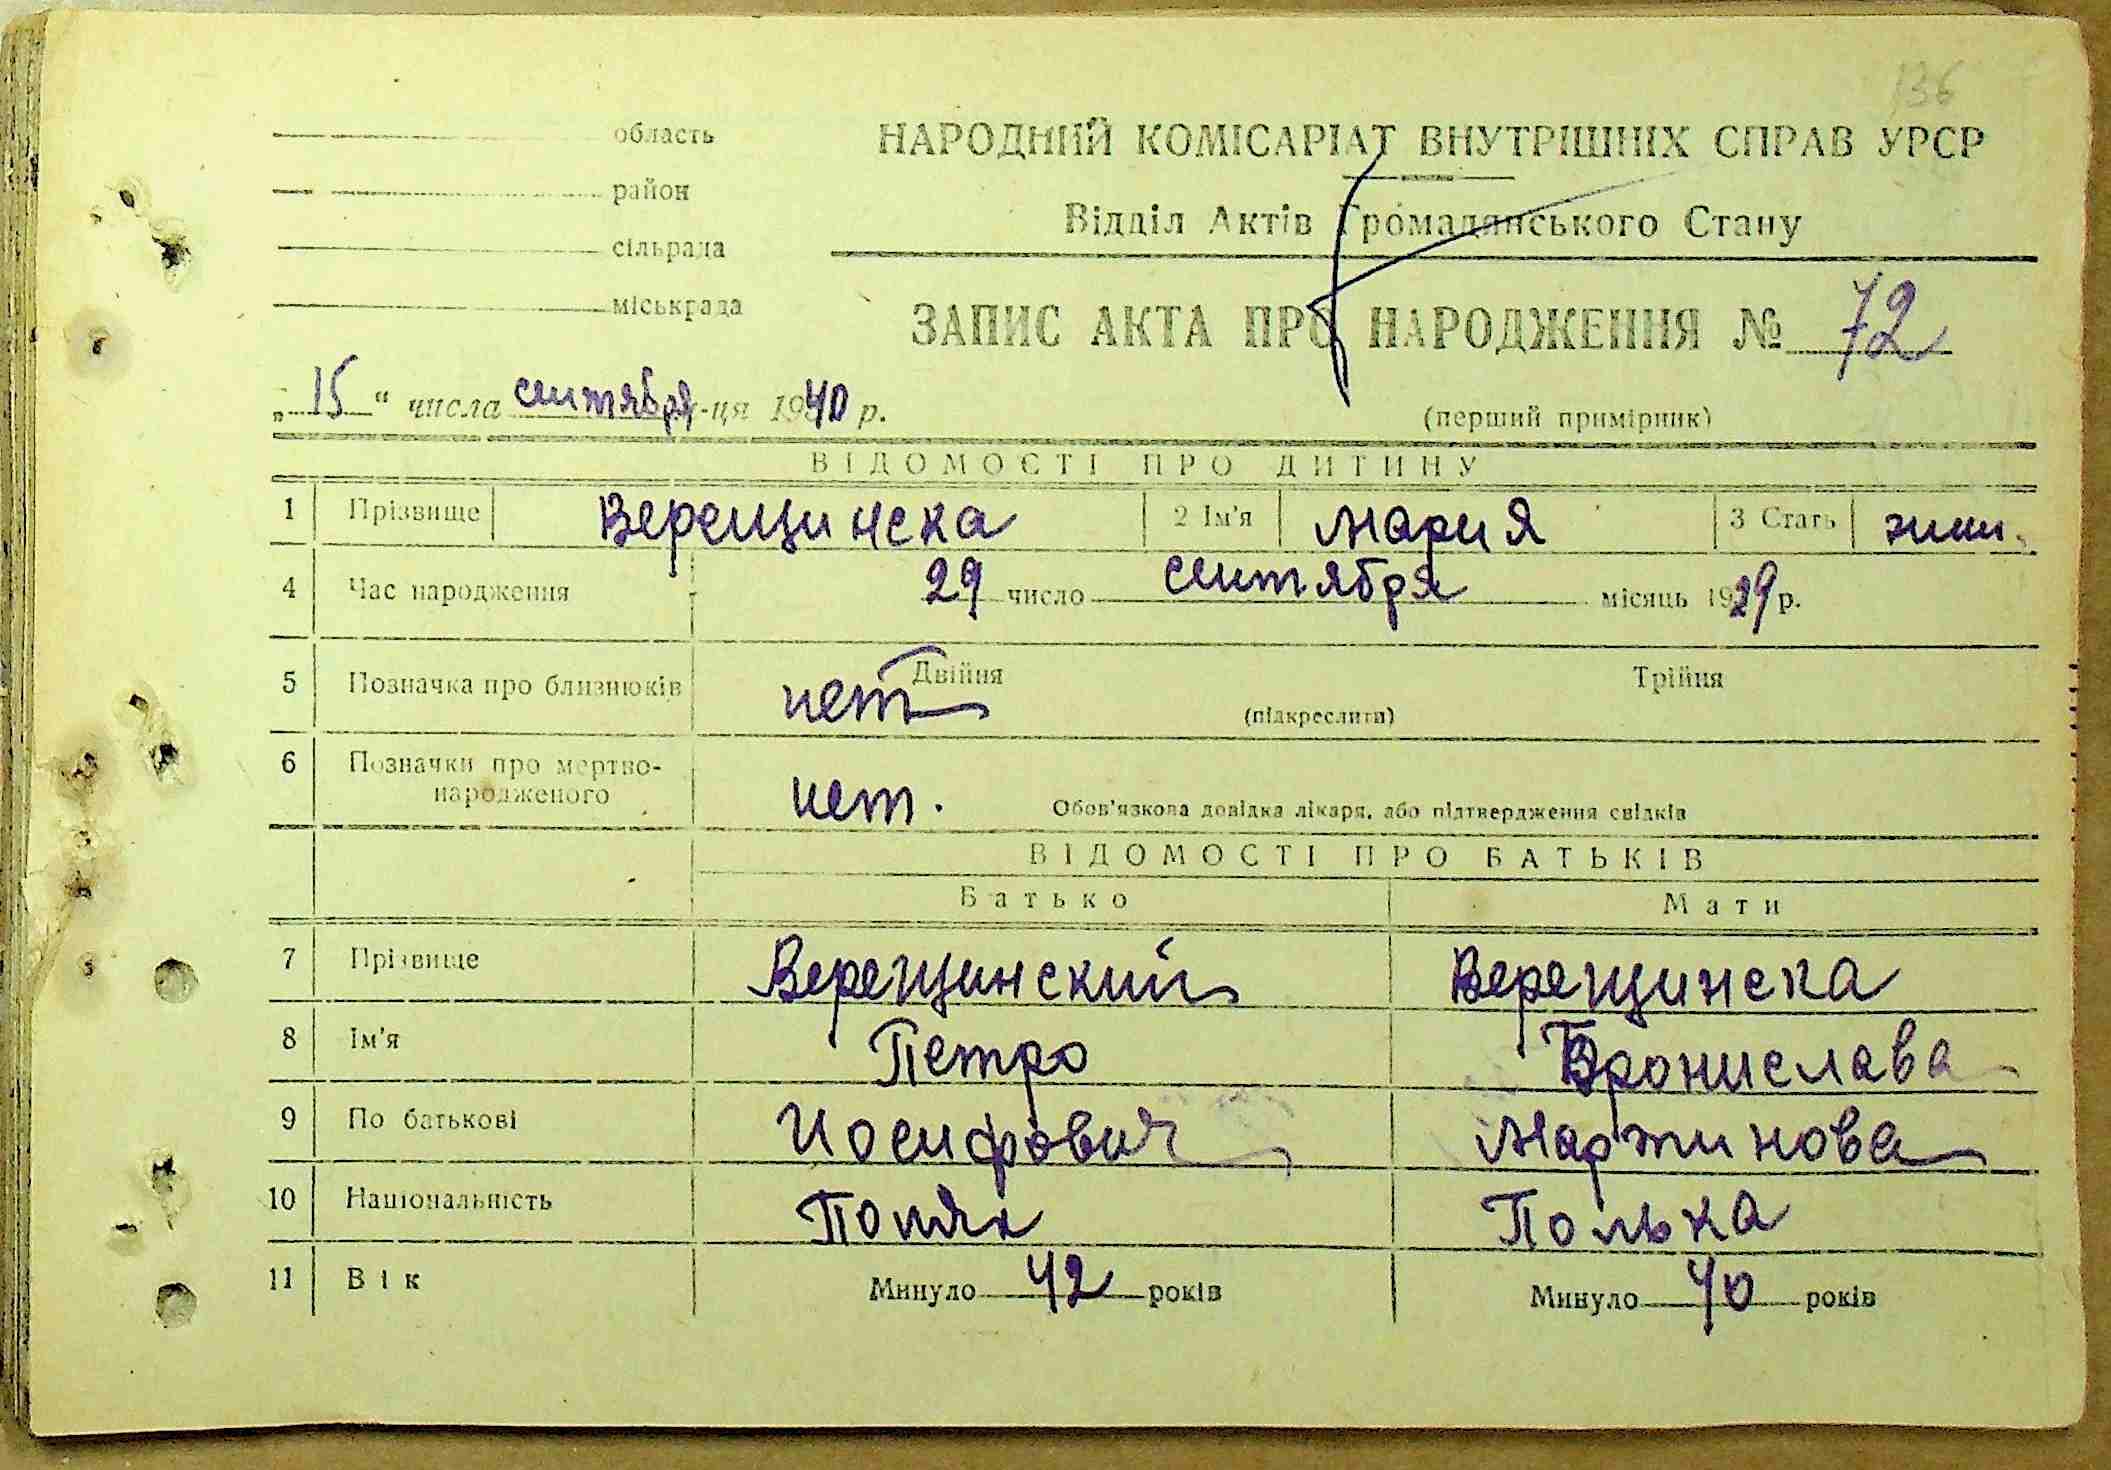 136
область
район
сільрада
міськрада
НАРОДНИЙ КОМІСАРІАТ ВНУТРІШНІХ СПРАВ УРСР
Відділ Актів Громадянського Стану
ЗАПИС АКТА ПРО НАРОДЖЕННЯ № 72
„15“ числа сентября-ця 1940 р.
(перший примірник)
ВІДОМОСТІ ПРО ДИТИНУ
1 Прізвище Верещинска 2 Ім'я Мария 3 Стать
4 Час народження 29 число сентября місяць 1929 р.
5 Позначка про близнюків нет Двійня Трійня
(підкреслити)
6 Позначки про мертво-
народженого нет. Обов'язкова довідка лікаря, або підтвердження свідків
ВІДОМОСТІ ПРО БАТЬКІВ
Батько Мати
7 Прізвище Верещинский Верещинска
8 Ім'я Петро Бронислава
9 По батькові Иосифович
10 Національність Поляк Полька
11 Вік Минуло 42 років Минуло 40 років